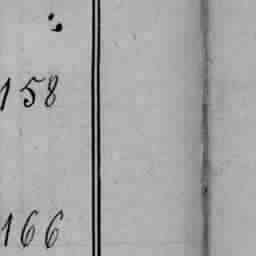 158
166